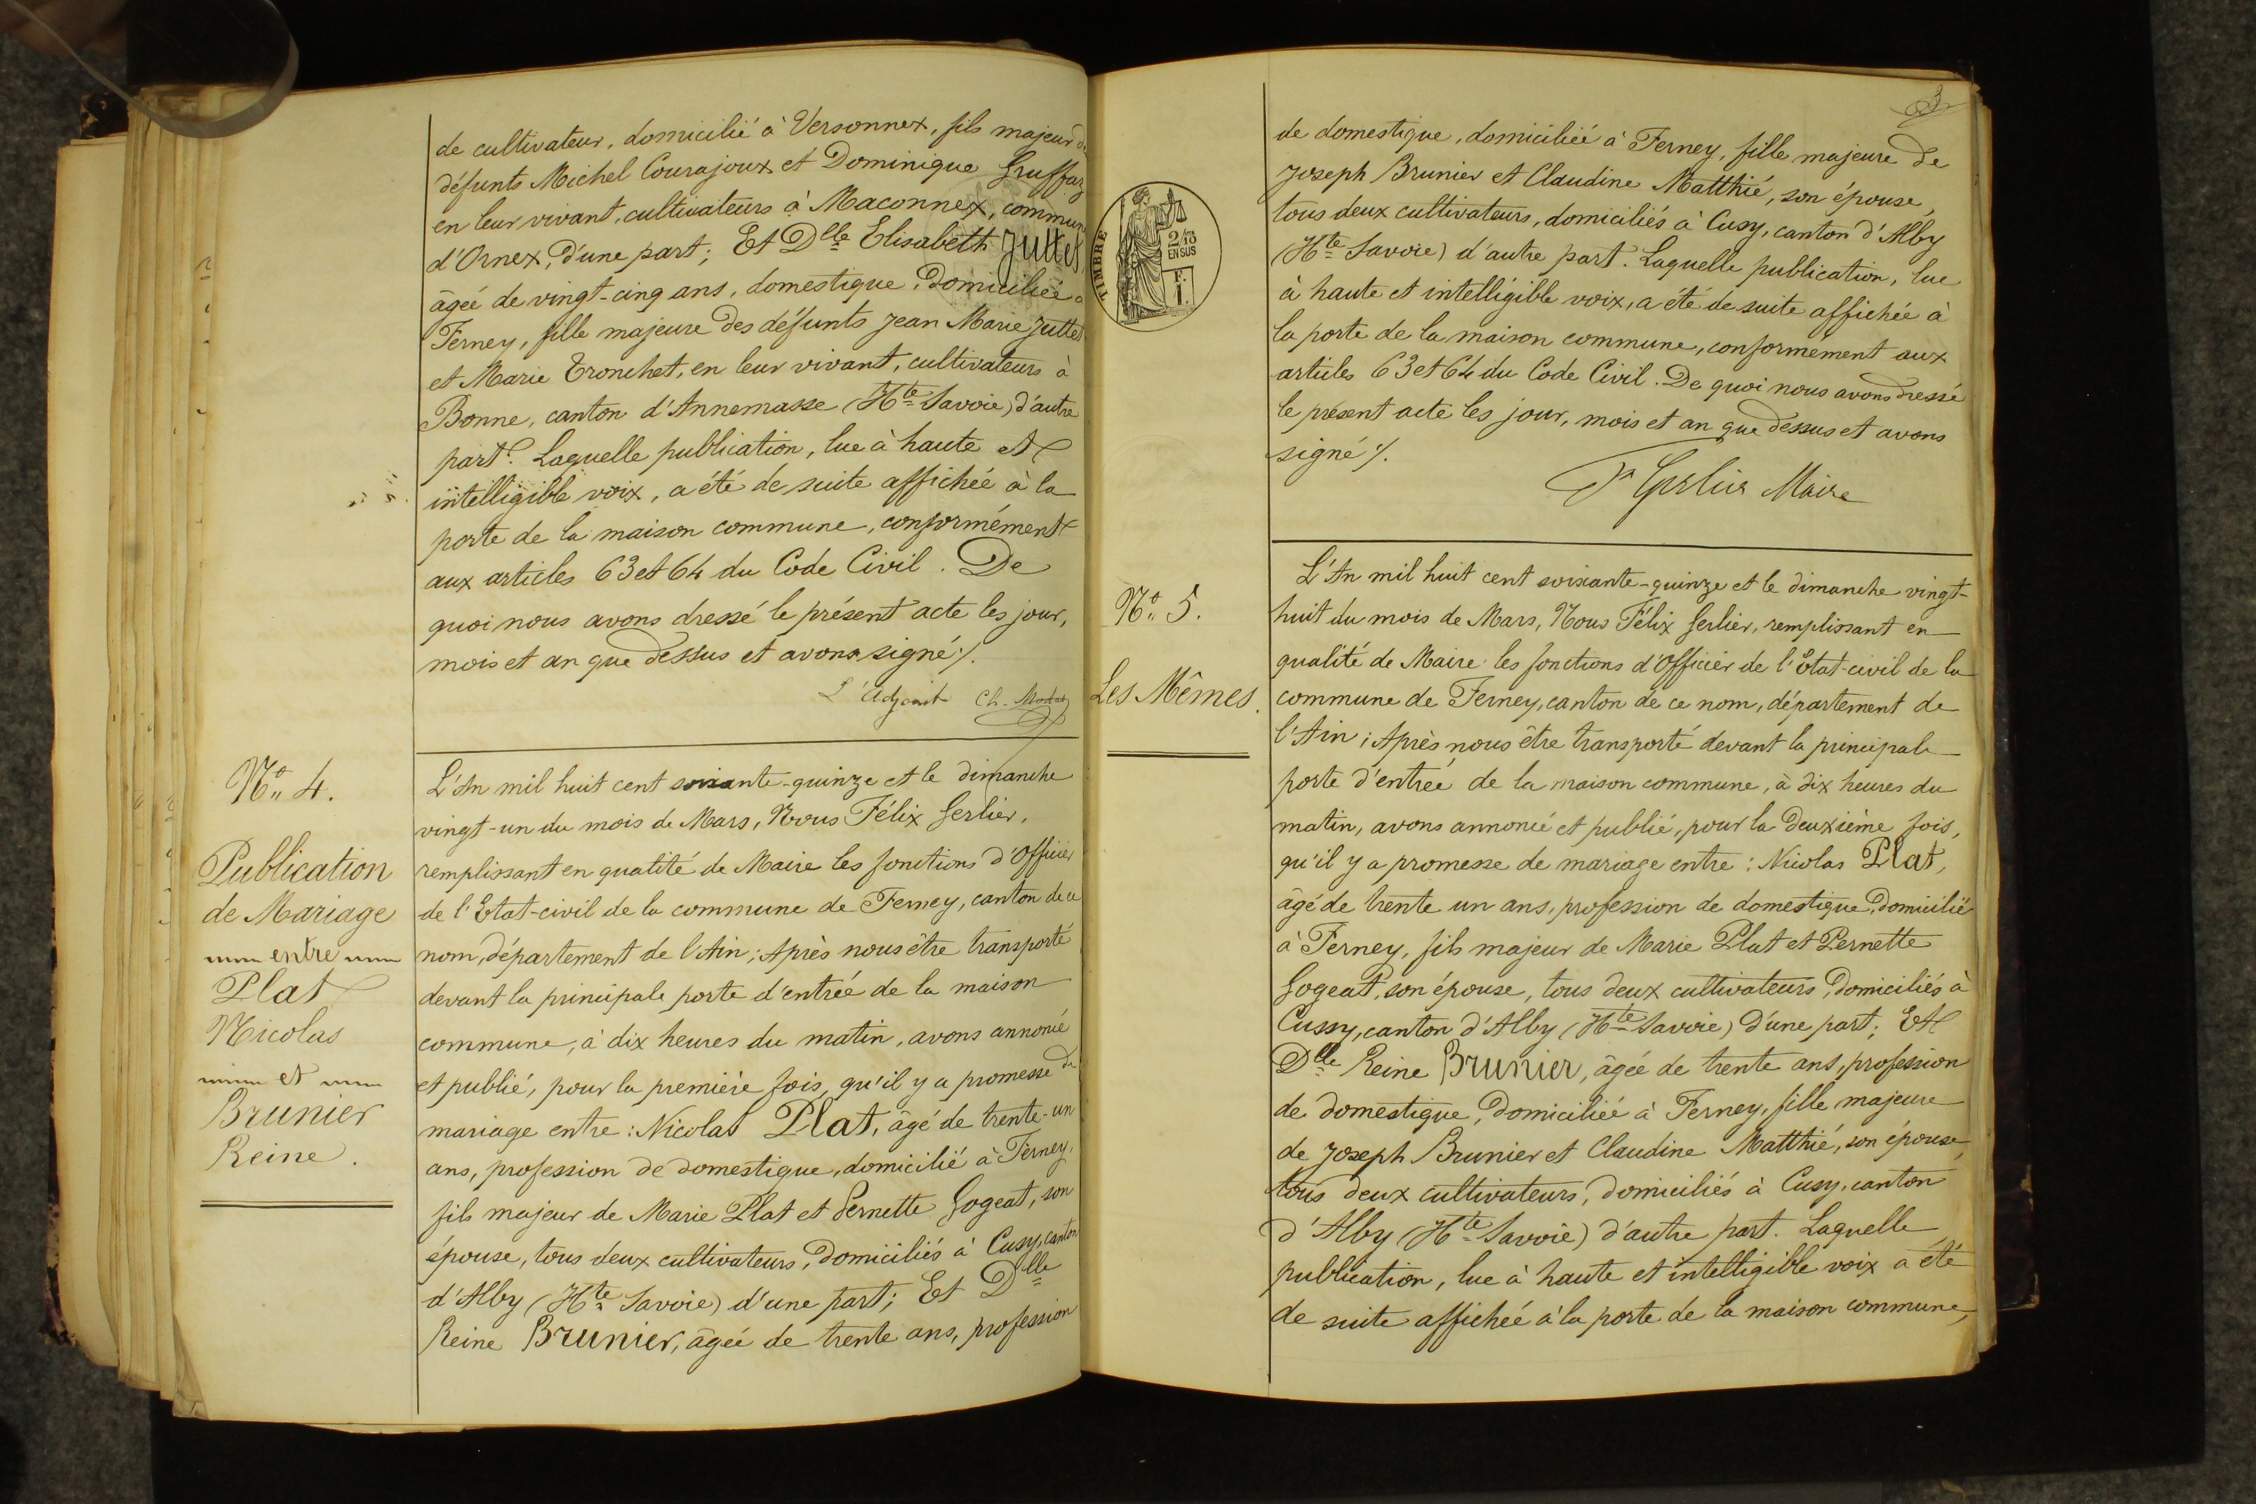 de cultivateur, domicilié à Versonnex, fils majeur de
défunts Michel Courajoux et Dominique Gruffaz
en leur vivant, cultivateurs à Maconnex, commune
d'Ornex, d'une part; Et Dlle Elisabeth Juttet,
âgée de vingt-cinq ans, domestique, domiciliée à
Ferney, fille majeure des défunts Jean Marie Juttet
et Marie Tronchet, en leur vivant, cultivateurs à
Bonne, canton d'Annemasse (Hte Savoie) d'autre
part. Laquelle publication, lue à haute et
intelligible voix, a été de suite affichée à la
porte de la maison commune, conformément
aux articles 63 et 64 du Code Civil. De
quoi nous avons dressé le présent acte les jour,
mois et an que dessus et avons signé ./.
L'Adjoint Ch.
No 4.
Publication
de Mariage
entre
Plat
Nicolas
et
Brunier
Reine.
L'An mil huit cent soixante-quinze et le dimanche
vingt-un du mois de Mars, Nous Félix Gerlier,
remplissant en qualité de Maire les fonctions d'Officier
de l'Etat-civil de la commune de Ferney, canton de ce
nom, département de l'Ain; Après nous être transporté
devant la principale porte d'entrée de la maison
commune, à dix heures du matin, avons annoncé
et publié, pour la première fois, qu'il y a promesse de
mariage entre: Nicolas Plat, âgé de trente-un
ans, profession de domestique, domicilié à Ferney,
fils majeur de Marie Plat et Pernette Gogeat, son
épouse, tous deux cultivateurs, domiciliés à Cusy, canton
d'Alby (Hte Savoie) d'une part; Et Dlle
Reine Brunier, âgée de trente ans, profession
3
TIMBRE
2/10
EN SUS
F.
1.
de domestique, domiciliée à Ferney, fille majeure de
Joseph Brunier et Claudine Matthié, son épouse,
tous deux cultivateurs, domiciliés à Cusy, canton d'Alby
(Hte Savoie) d'autre part. Laquelle publication, lue
à haute et intelligible voix, a été de suite affichée à
la porte de la maison commune, conformément aux
articles 63 et 64 du Code Civil. De quoi nous avons dressé
le présent acte les jour, mois et an que dessus et avons
signé ./.
Gerlier Maire
No 5.
Les Mêmes.
L'An mil huit cent soixante-quinze et le dimanche vingt-
huit du mois de Mars, Nous Félix Gerlier, remplissant en
qualité de Maire les fonctions d'Officier de l'Etat-civil de la
commune de Ferney, canton de ce nom, département de
l'Ain; Après nous être transporté devant la principale
porte d'entrée de la maison commune, à dix heures du
matin, avons annoncé et publié, pour la deuxième fois,
qu'il y a promesse de mariage entre: Nicolas Plat,
âgé de trente un ans, profession de domestique, domicilié
à Ferney, fils majeur de Marie Plat et Pernette
Gogeat, son épouse, tous deux cultivateurs, domiciliés à
Cussy, canton d'Alby (Hte Savoie) d'une part; Et
Dlle Reine Brunier, âgée de trente ans, profession
de domestique, domiciliée à Ferney, fille majeure
de Joseph Brunier et Claudine Matthié, son épouse,
tous deux cultivateurs, domiciliés à Cusy, canton
d'Alby (Hte Savoie) d'autre part. Laquelle
publication, lue à haute et intelligible voix a été
de suite affichée à la porte de la maison commune,